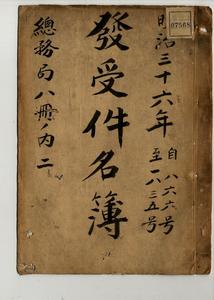 07568
明治三十六年 自八六六号 至一八三五号
發受件名簿
總務局八冊ノ内二